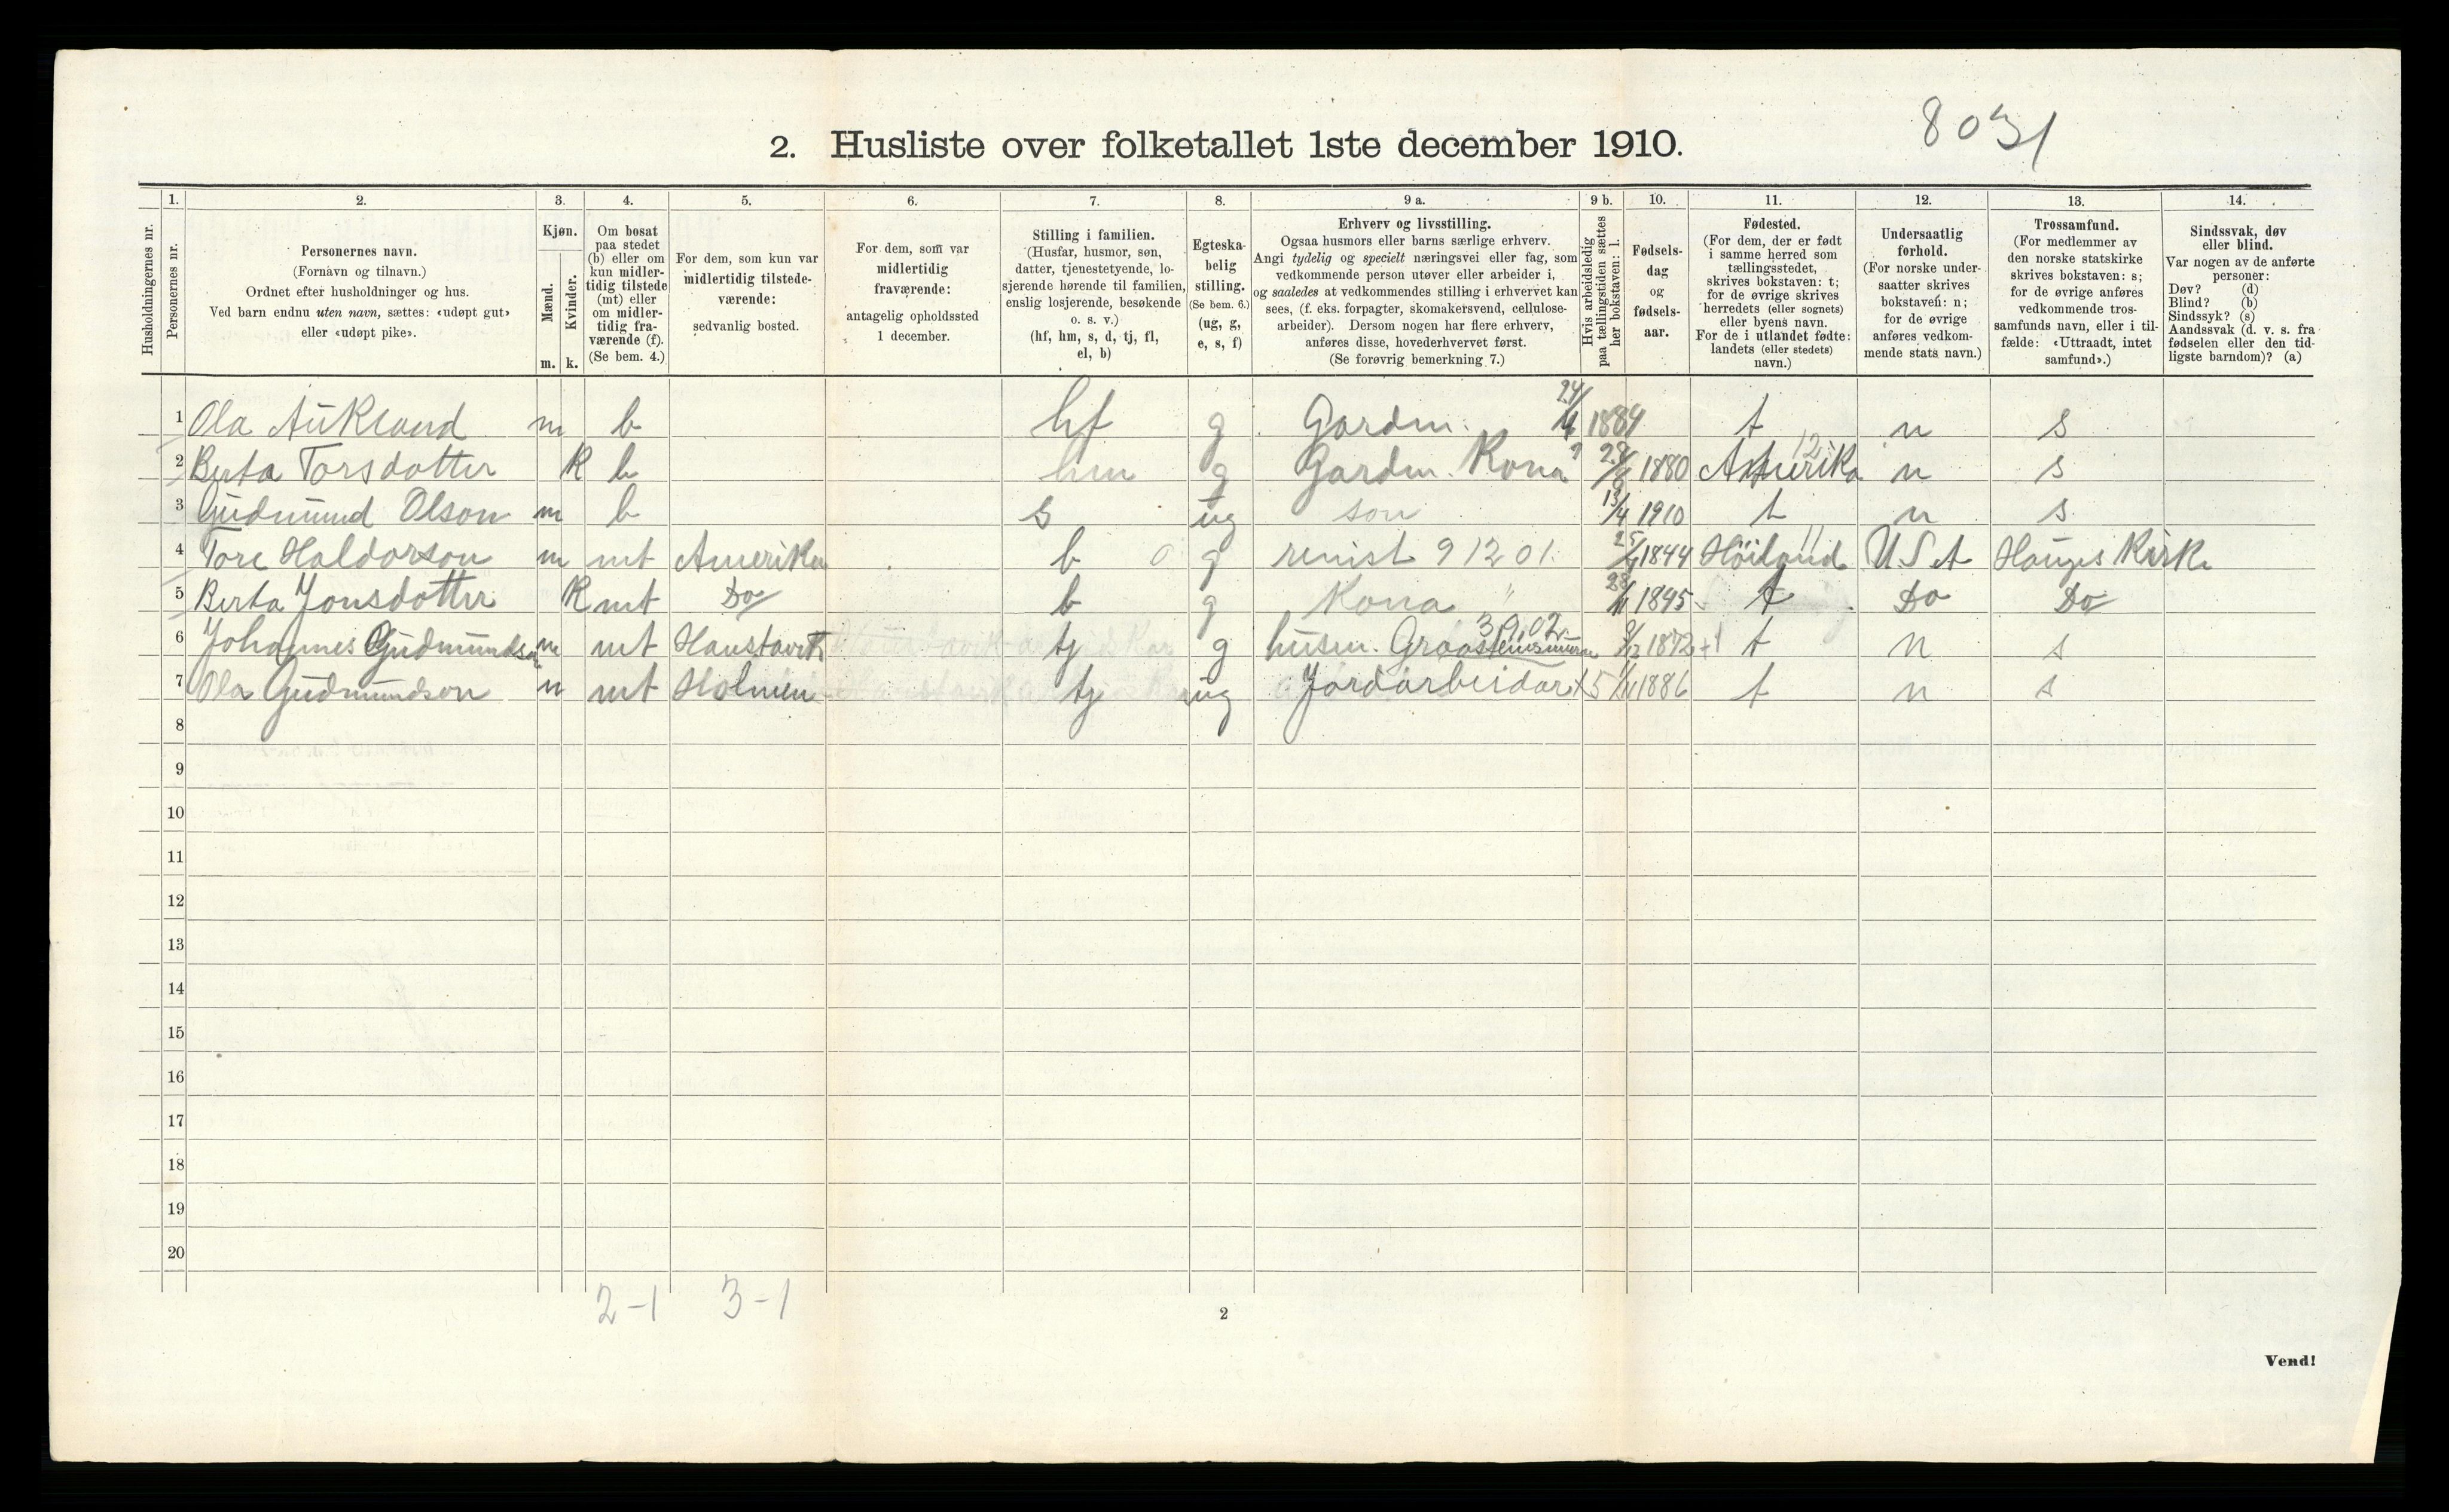 8031
2. Husliste over folketallet 1ste december 1910.
Husholdningernes nr.
1.
Personernes nr.
2.
Personernes navn.
(Fornavn og tilnavn.)
Ordnet efter husholdninger og hus.
Ved barn endnu uten navn, sættes: «udøpt gut»
eller «udøpt pike».
3.
Kjøn.
Mænd.
Kvinder.
m. k.
4.
Om bosat
paa stedet
(b) eller om
kun midler-
tidig tilstede
(mt) eller
om midler-
tidig fra-
værende (f).
(Se bem. 4.)
5.
For dem, som kun var
midlertidig tilstede-
værende:
sedvanlig bosted.
6.
For dem, som var
midlertidig
fraværende:
antagelig opholdssted
1 december.
7.
Stilling i familien.
(Husfar, husmor, søn,
datter, tjenestetyende, lo-
sjerende hørende til familien,
enslig losjerende, besøkende
o. s. v.)
(hf, hm, s, d, tj, fl,
el, b)
8.
Egteska-
belig
stilling.
(Se bem. 6.)
(ug, g,
e, s, f)
9 a.
Erhverv og livsstilling.
Ogsaa husmors eller barns særlige erhverv.
Angi tydelig og specielt næringsvei eller fag, som
vedkommende person utøver eller arbeider i,
og saaledes at vedkommendes stilling i erhvervet kan
sees, (f. eks. forpagter, skomakersvend, cellulose-
arbeider). Dersom nogen har flere erhverv,
anføres disse, hovederhvervet først.
(Se forøvrig bemerkning 7.)
9 b.
Hvis arbeidsledig
paa tællingstiden sættes
her bokstaven: l.
10.
Fødsels-
dag
og
fødsels-
aar.
11.
Fødested.
(For dem, der er født
i samme herred som
tællingsstedet,
skrives bokstaven: t;
for de øvrige skrives
herredets (eller sognets)
eller byens navn.
For de i utlandet fødte:
landets (eller stedets)
navn.)
12.
Undersaatlig
forhold.
(For norske under-
saatter skrives
bokstaven: n;
for de øvrige
anføres vedkom-
mende stats navn.)
13.
Trossamfund.
(For medlemmer av
den norske statskirke
skrives bokstaven: s;
for de øvrige anføres
vedkommende tros-
samfunds navn, eller i til-
fælde: «Uttraadt, intet
samfund».)
14.
Sindssvak, døv
eller blind.
Var nogen av de anførte
personer:
Døv? (d)
Blind? (b)
Sindssyk? (s)
Aandssvak (d. v. s. fra
fødselen eller den tid-
ligste barndom)? (a)
1 Ola Aukland m b hf g Gardm. 24/4 1884 t n s
2 Berta Torsdotter K b hm g Gardm. Kona 1880 Amerika 12 n s
3 Gudmund Olson m b s ug son 13/4 1910 t n s
4 Tore Haldorson m mt Amerika b 0 g 91201. 1844 Höiland 11 U.S.A Hauges Kirke
5 Berta Jonsdotter K mt Do b g Kona " 28/11 1845 t Do Do
6 Johannes Gudmundson m mt tj g husm. 3902 1872 +1 t n s
7 Ola Gudmundson m mt Holmen tj ug Jordarbeidar 1886 t n s
8
9
10
11
12
13
14
15
16
17
18
19
20
2-1 3-1
2
Vend!